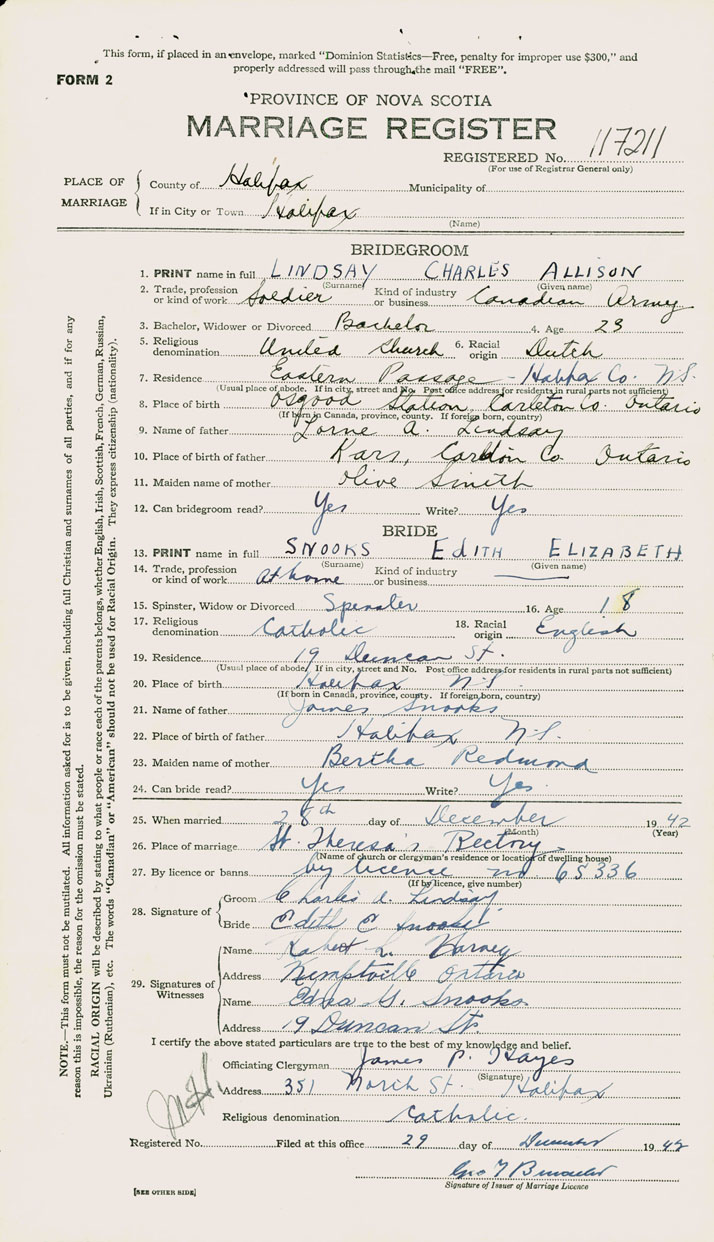 This form, if placed in an envelope, marked "Dominion Statistics—Free, penalty for improper use $300," and
properly addressed will pass through the mail "FREE".
FORM 2
PROVINCE OF NOVA SCOTIA
MARRIAGE REGISTER
REGISTERED No. 117211
(For use of Registrar General only)
PLACE OF MARRIAGE
County of Halifax Municipality of
If in City or Town Halifax
(Name)
BRIDEGROOM
1. PRINT name in full LINDSAY CHARLES ALLISON
(Surname) (Given name)
2. Trade, profession or kind of work Soldier Kind of industry or business Canadian Army
3. Bachelor, Widower or Divorced Bachelor 4. Age 23
5. Religious denomination United Church 6. Racial origin Dutch
7. Residence Eastern Passage - Halifax Co. N.S.
(Usual place of abode. If in city, street and No. Post office address for residents in rural parts not sufficient)
8. Place of birth Osgood Station, Carleton Co. Ontario
(If born in Canada, province, county. If foreign born, country)
9. Name of father Lorne A. Lindsay
10. Place of birth of father Kars, Carleton Co Ontario
11. Maiden name of mother Olive Smith
12. Can bridegroom read? Yes Write? Yes
BRIDE
13. PRINT name in full SNOOKS EDITH ELIZABETH
(Surname) (Given name)
14. Trade, profession or kind of work At home Kind of industry or business
15. Spinster, Widow or Divorced Spinster 16. Age 18
17. Religious denomination Catholic 18. Racial origin English
19. Residence 19 Duncan St.
(Usual place of abode. If in city, street and No. Post office address for residents in rural parts not sufficient)
20. Place of birth Halifax N.S.
(If born in Canada, province, county. If foreign born, country)
21. Name of father James Snooks
22. Place of birth of father Halifax N.S.
23. Maiden name of mother Bertha Redmond
24. Can bride read? Yes Write? Yes
25. When married 28th day of December 1942
(Month) (Year)
26. Place of marriage St. Theresa's Rectory
(Name of church or clergyman's residence or location of dwelling house)
27. By licence or banns by license no 65336
(If by licence, give number)
28. Signature of
Groom Charles A. Lindsay
Bride Edith E Snooks
29. Signatures of Witnesses
Name Robert L. Harney
Address Kemptville Ontario
Name Edna G. Snooks
Address 19 Duncan St.
I certify the above stated particulars are true to the best of my knowledge and belief.
Officiating Clergyman James P. Hayes
(Signature)
Address 351 North St. Halifax
Religious denomination Catholic.
Registered No. Filed at this office 29 day of December 1942
Geo
Signature of Issuer of Marriage Licence
[SEE OTHER SIDE]
NOTE.—This form must not be mutilated. All information asked for is to be given, including full Christian and surnames of all parties, and if for any
reason this is impossible, the reason for the omission must be stated.
RACIAL ORIGIN will be described by stating to what people or race each of the parents belongs, whether English, Irish, Scottish, French, German, Russian,
Ukrainian (Ruthenian), etc. The words "Canadian" or "American" should not be used for Racial Origin. They express citizenship (nationality).